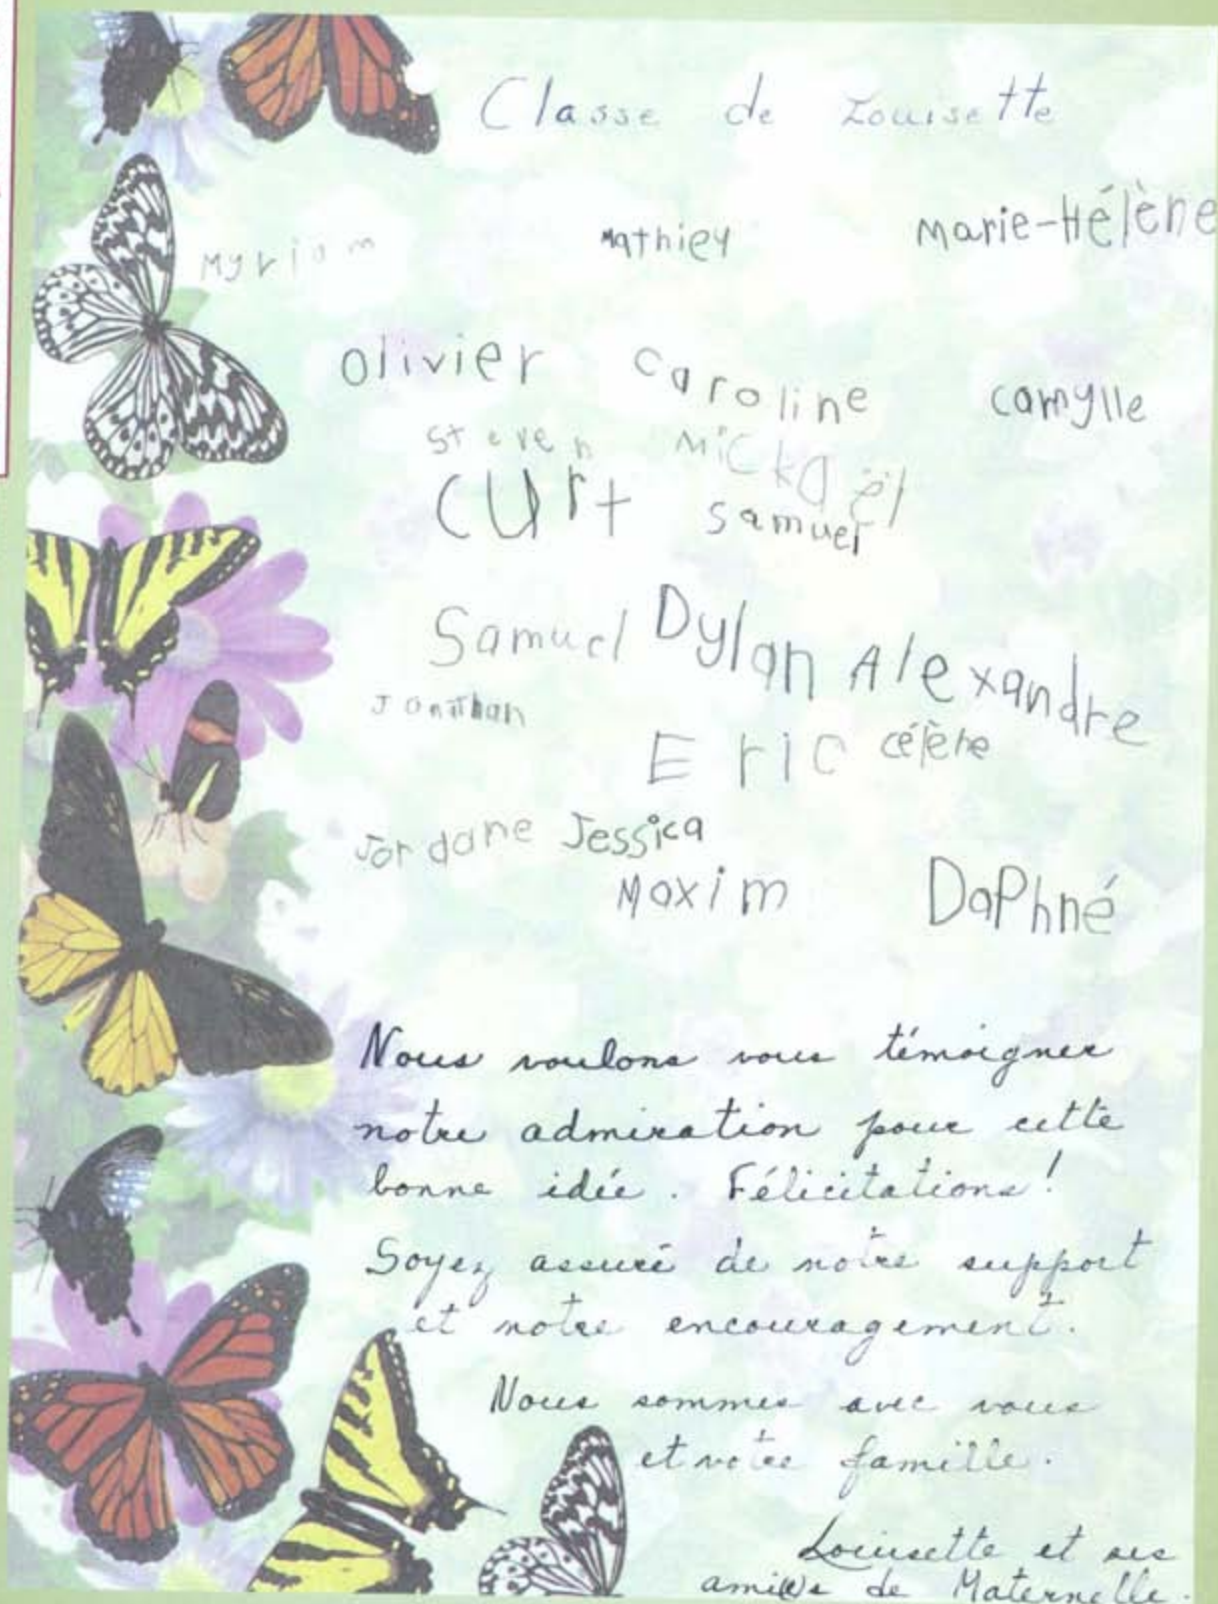 Classe de Louisette
Myriam Mathiey Marie-Hélène
Olivier Caroline Camylle
Steven Mickaël
Curt Samuel
Samuel Dylan Alexandre
Jonathan
Eric célène
Jordane Jessica
Maxim Daphné
Nous voulons vous témoigner
notre admiration pour cette
bonne idée. Félicitations!
Soyez assuré de notre support
et notre encouragement.
Nous sommes avec vous
et votre famille.
Louisette et ses
ami(e)s de Maternelle.